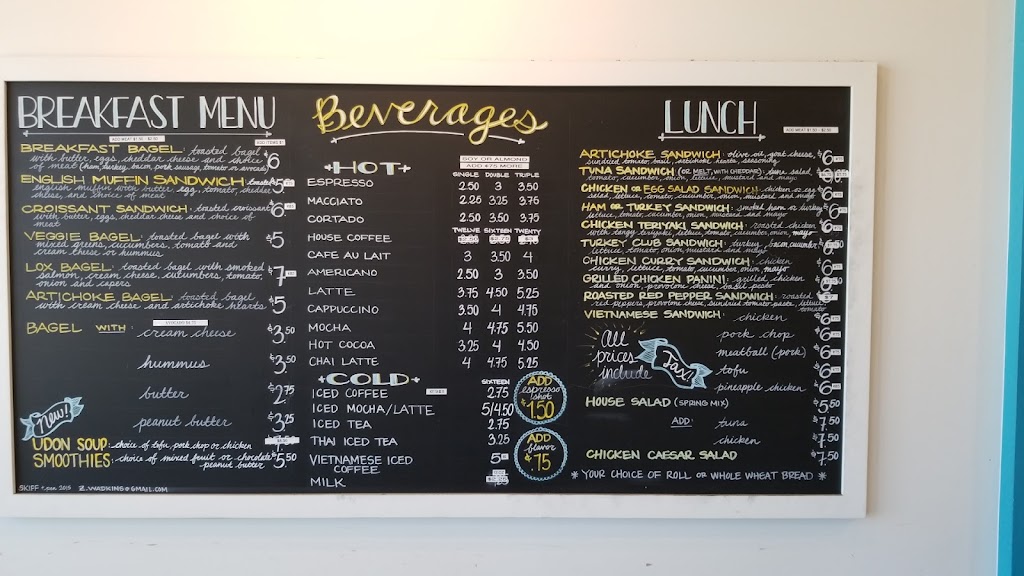 BREAKFAST MENU
BREAKFAST BAGEL: toasted bagel
with butter, eggs, cheddar cheese and choice
of meat (ham, turkey, bacon, pork sausage, tomato or avocado)
$6
ENGLISH MUFFIN SANDWICH toasted
english muffin with butter egg, tomato, cheddar
cheese, and choice of meat
CROISSANT SANDWICH: toasted croissant
with butter, eggs, cheddar cheese and choice of
meat
$6
VEGGIE BAGEL: toasted bagel with
mixed greens, cucumbers, tomato and
cream cheese or hummus
$5
LOX BAGEL: toasted bagel with smoked
salmon, cream cheese, cucumbers, tomato,
onion and capers
$7
ARTICHOKE BAGEL: toasted bagel
with cream cheese and artichoke hearts
$5
BAGEL WITH: cream cheese $3.50
hummus $3.50
butter $2.75
peanut butter $3.25
New!
UDON SOUP: choice of tofu, pork chop or chicken
SMOOTHIES: choice of mixed fruit or chocolate $5.50
peanut butter
SKIFF 2015 Z.WADKINS@GMAIL.COM
Beverages
HOT
SOY OR ALMOND
ADD ¢75 MORE
SINGLE DOUBLE TRIPLE
ESPRESSO 2.50 3 3.50
MACCIATO 2.25 3.25 3.75
CORTADO 2.50 3.50 3.75
TWELVE SIXTEEN TWENTY
HOUSE COFFEE
CAFE AU LAIT 3 3.50 4
AMERICANO 2.50 3 3.50
LATTE 3.75 4.50 5.25
CAPPUCCINO 3.50 4 4.75
MOCHA 4 4.75 5.50
HOT COCOA 3.25 4 4.50
CHAI LATTE 4 4.75 5.25
COLD
SIXTEEN
ICED COFFEE 2.75
ICED MOCHA/LATTE 5/4.50
ICED TEA 2.75
THAI ICED TEA 3.25
VIETNAMESE ICED
COFFEE
5
MILK
ADD
espresso
shot
$1.50
ADD
flavor
$.75
LUNCH
ARTICHOKE SANDWICH: olive oil, goat cheese,
sundried tomato, basil, artichoke hearts, seasoning
$6
TUNA SANDWICH (OR MELT, WITH CHEDDAR): tuna salad,
tomato, cucumber, onion, lettuce, mustard and mayo
CHICKEN OR EGG SALAD SANDWICH: chicken or egg
salad, lettuce, tomato, cucumber, onion, mustard and mayo
$6
HAM OR TURKEY SANDWICH: smoked ham or turkey
lettuce, tomato, cucumber, onion, mustard and mayo
$6
CHICKEN TERIYAKI SANDWICH: roasted chicken
with tangy teriyaki lettuce, tomato, cucumber, onion, mayo
$6
TURKEY CLUB SANDWICH: turkey, bacon, cucumber
lettuce, tomato, onion, mustard and mayo
CHICKEN CURRY SANDWICH: chicken
curry, lettuce, tomato, cucumber, onion, mayo
$6
GRILLED CHICKEN PANINI: grilled chicken
and onion, provolone cheese, basil pesto
ROASTED RED PEPPER SANDWICH: roasted
red peppers, provolone cheese, sundried tomato pesto, lettuce,
tomato
VIETNAMESE SANDWICH: chicken $6
pork chop $6
meatball (pork) $6
tofu $6
pineapple chicken $6
all
prices
include
Tax!
HOUSE SALAD (SPRING MIX) $5.50
ADD: tuna $7.50
chicken $7.50
CHICKEN CAESAR SALAD $7.50
* YOUR CHOICE OF ROLL OR WHOLE WHEAT BREAD *